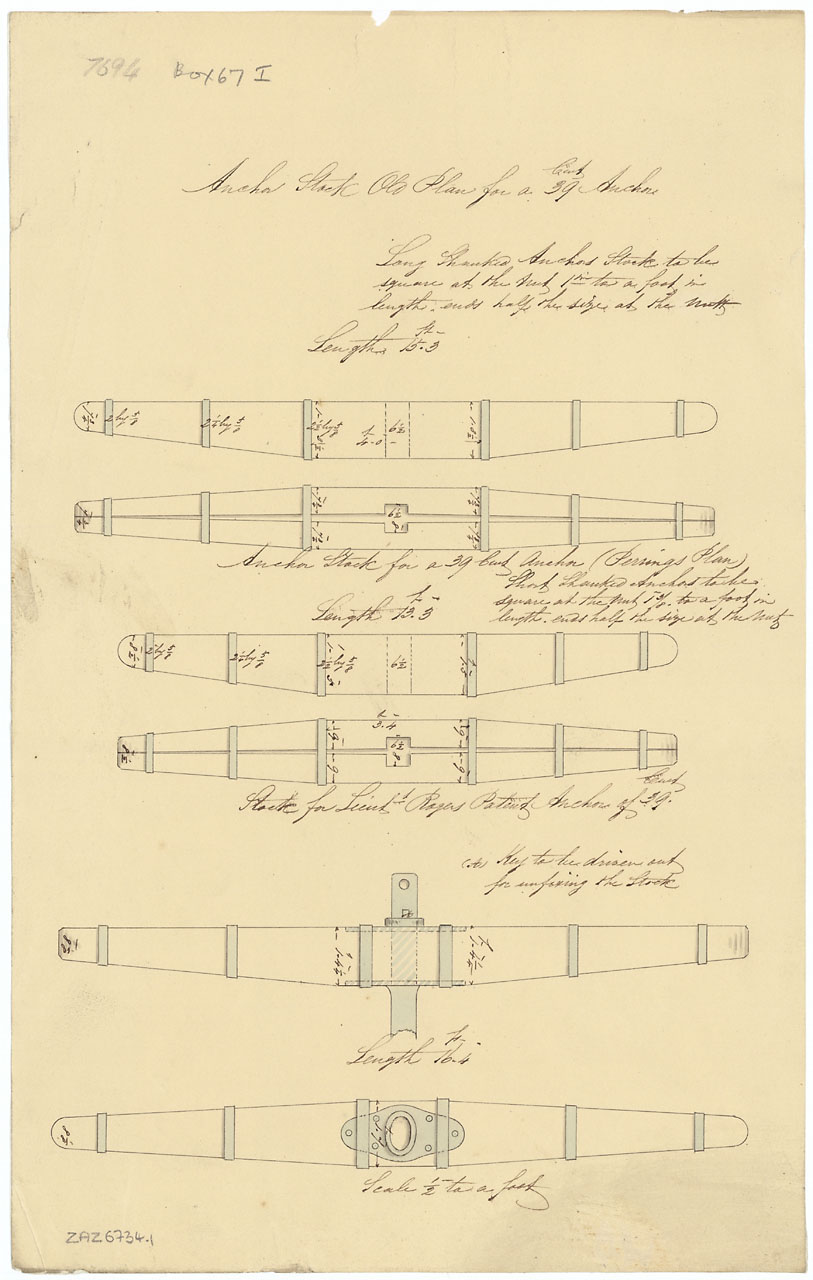 7694 Box 67 I
Anchor Stock Old Plan for a 39 Cwt Anchor
Long Shanked Anchors Stock to be
square at the Nut 1 in to a foot in
length. ends half the size at the Nutt
Length 15.3 ft
2 by 5/8
2 1/4 by 5/8
4.0
6 1/2
6 1/2
8
Anchor Stock for a 39 Cwt Anchor (Perrings Plan)
Short Shanked Anchors to be
square at the Nut to a foot in
length. ends half the size at the Nut
Length 13.3 ft
8 1/2
2 by 5/8
2 1/4 by 5/8
2 1/2 by 5/8
6 1/2
3.4
8 1/2
9
9
6 1/2
8
9
9
Stock for Lieut Rogers Patent Anchor of 39 Cwt
(A) Key to be driven out
for unfixing the Stock
A
8 1/2
1.4 1/2
1.4 1/2
Length 16.4 ft
8 1/2
Scale 1/2 to a foot
ZAZ6734.1